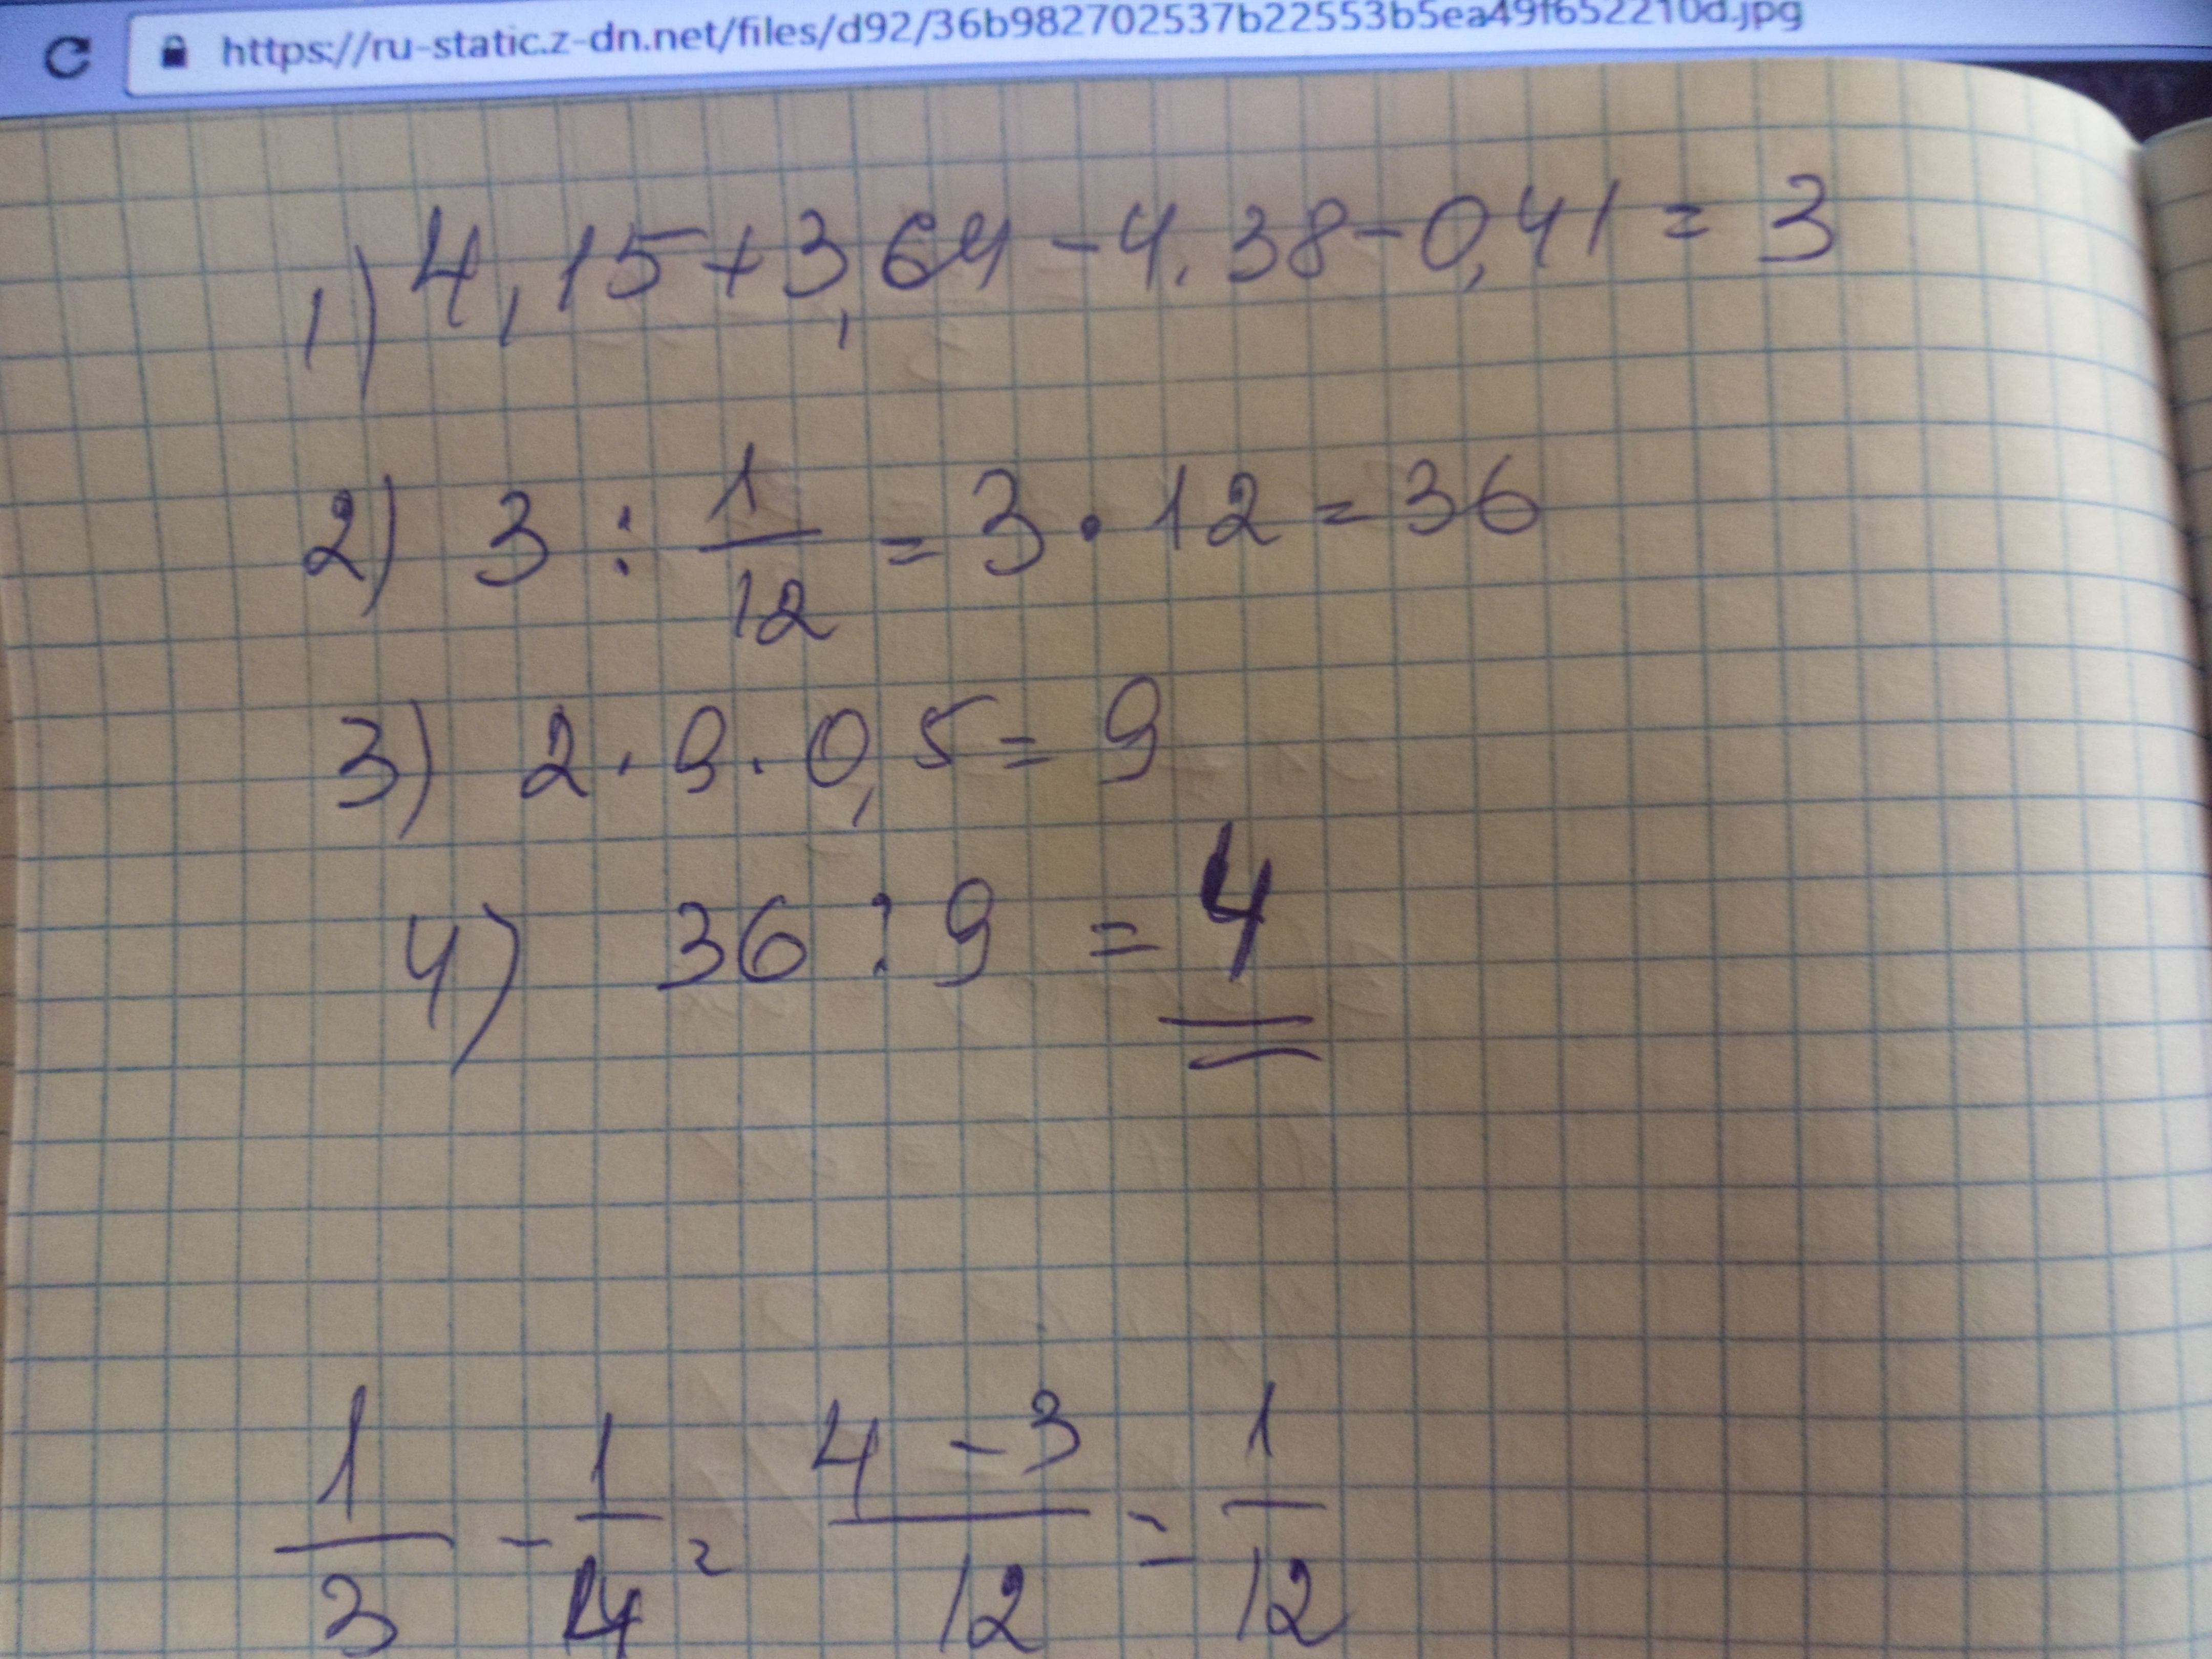 https://ru-static.z-dn.net/files/d92/36b982702537b22553b5ea49f652210d.jpg
1) 4,15+3,64-4.38-0,41=3
2) 3 : 1/12 = 3 · 12 = 36
3) 2 · 9 · 0,5 = 9
4) 36 : 9 = 4
1/3 - 1/4 = (4 - 3)/12 = 1/12